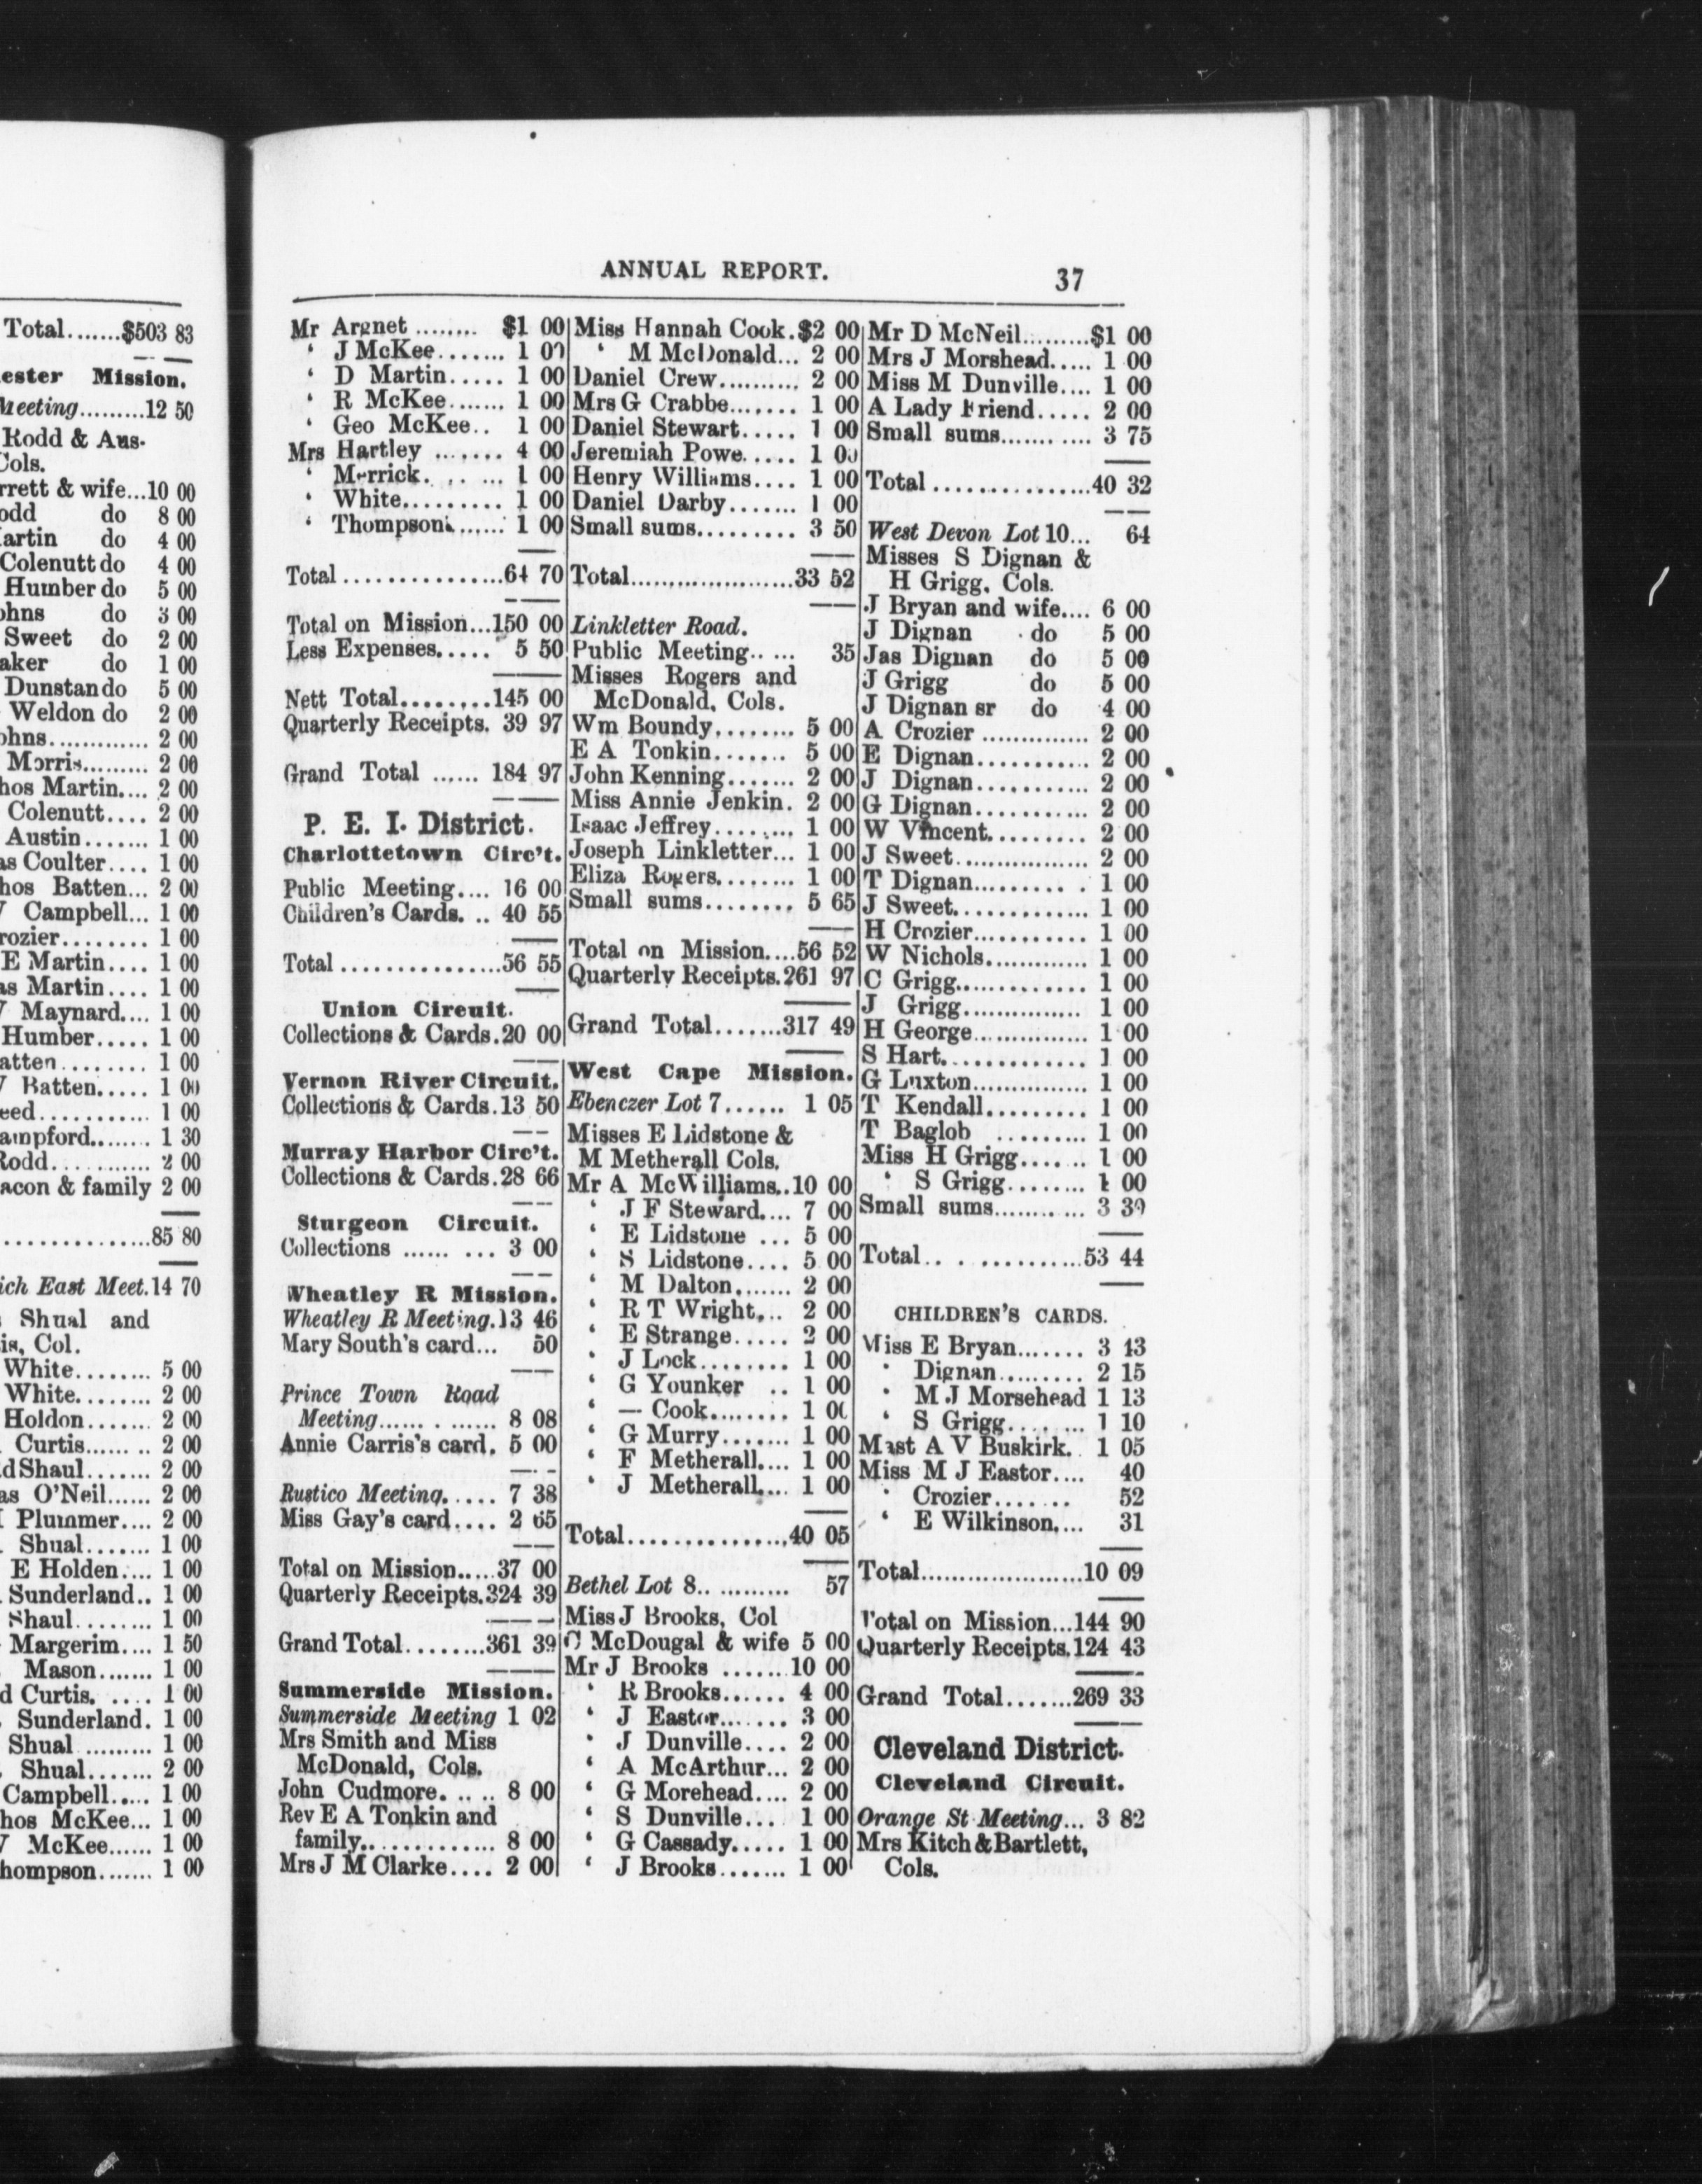 Total.......$503 83
ester Mission.
Meeting.........12 50
Rodd & Aus-
Cols.
rrett & wife...10 00
odd do 8 00
artin do 4 00
Colenutt do 4 00
Humber do 5 00
ohns do 3 00
Sweet do 2 00
aker do 1 00
Dunstan do 5 00
Weldon do 2 00
ohns............. 2 00
Morris......... 2 00
hos Martin.... 2 00
Colenutt.... 2 00
Austin....... 1 00
as Coulter.... 1 00
hos Batten... 2 00
Campbell... 1 00
rozier........ 1 00
E Martin.... 1 00
as Martin.... 1 00
Maynard.... 1 00
Humber..... 1 00
atten......... 1 00
Batten..... 1 00
eed........... 1 00
ampford....... 1 30
Rodd........... 2 00
acon & family 2 00
...............85 80
ich East Meet.14 70
Shual and
is, Col.
White........ 5 00
White........ 2 00
Holdon....... 2 00
Curtis........ 2 00
d Shaul....... 2 00
as O'Neil...... 2 00
Plummer.... 2 00
Shual........ 1 00
E Holden.... 1 00
Sunderland.. 1 00
Shaul........ 1 00
Margerim.... 1 50
Mason....... 1 00
d Curtis. .... 1 00
Sunderland. 1 00
Shual ......... 1 00
Shual....... 2 00
Campbell..... 1 00
hos McKee... 1 00
McKee...... 1 00
hompson....... 1 00
ANNUAL REPORT. 37
Mr Argnet ........ $1 00
‘ J McKee....... 1 00
‘ D Martin..... 1 00
‘ R McKee....... 1 00
‘ Geo McKee.. 1 00
Mrs Hartley ....... 4 00
‘ Merrick. .. ... 1 00
‘ White.......... 1 00
‘ Thompson....... 1 00
Total...............64 70
Total on Mission...150 00
Less Expenses..... 5 50
Nett Total........145 00
Quarterly Receipts. 39 97
Grand Total ...... 184 97
P. E. I. District.
Charlottetown Circ't.
Public Meeting.... 16 00
Children's Cards. .. 40 55
Total...............56 55
Union Circuit.
Collections & Cards.20 00
Vernon River Circuit.
Collections & Cards.13 50
Murray Harbor Circ't.
Collections & Cards.28 66
Sturgeon Circuit.
Collections ...... ... 3 00
Wheatley R Mission.
Wheatley R Meeting.13 46
Mary South's card... 50
Prince Town Road
Meeting...... . ....... 8 08
Annie Carris's card. 5 00
Rustico Meeting...... 7 38
Miss Gay's card.... 2 65
Total on Mission.....37 00
Quarterly Receipts.324 39
Grand Total........361 39
Summerside Mission.
Summerside Meeting 1 02
Mrs Smith and Miss
McDonald, Cols.
John Cudmore. .. .. 8 00
Rev E A Tonkin and
family.............. 8 00
Mrs J M Clarke.... 2 00
Miss Hannah Cook.$2 00
‘ M McDonald... 2 00
Daniel Crew.......... 2 00
Mrs G Crabbe....... 1 00
Daniel Stewart..... 1 00
Jeremiah Powe..... 1 00
Henry Williams.... 1 00
Daniel Darby....... 1 00
Small sums......... 3 50
Total.....................33 52
Linkletter Road.
Public Meeting.. ... 35
Misses Rogers and
McDonald, Cols.
Wm Boundy........ 5 00
E A Tonkin....... 5 00
John Kenning....... 2 00
Miss Annie Jenkin. 2 00
Isaac Jeffrey......... 1 00
Joseph Linkletter... 1 00
Eliza Rogers........ 1 00
Small sums........ 5 65
Total on Mission....56 52
Quarterly Receipts.261 97
Grand Total.......317 49
West Cape Mission.
Ebenezer Lot 7...... 1 05
Misses E Lidstone &
M Metherall Cols.
Mr A McWilliams..10 00
‘ J F Steward.... 7 00
‘ E Lidstone ... 5 00
‘ S Lidstone.... 5 00
‘ M Dalton....... 2 00
‘ R T Wright... 2 00
‘ E Strange..... 2 00
‘ J Lock......... 1 00
‘ G Younker .. 1 00
‘ — Cook........ 1 00
‘ G Murry....... 1 00
‘ F Metherall.... 1 00
‘ J Metherall.... 1 00
Total...............40 05
Bethel Lot 8.. .......... 57
Miss J Brooks, Col
C McDougal & wife 5 00
Mr J Brooks .......10 00
‘ R Brooks...... 4 00
‘ J Eastor....... 3 00
‘ J Dunville.... 2 00
‘ A McArthur... 2 00
‘ G Morehead.... 2 00
‘ S Dunville.... 1 00
‘ G Cassady..... 1 00
‘ J Brooks....... 1 00
Mr D McNeil.........$1 00
Mrs J Morshead..... 1 00
Miss M Dunville.... 1 00
A Lady Friend..... 2 00
Small sums........... 3 75
Total................40 32
West Devon Lot 10... 64
Misses S Dignan &
H Grigg, Cols.
J Bryan and wife.... 6 00
J Dignan do 5 00
Jas Dignan do 5 00
J Grigg do 5 00
J Dignan sr do 4 00
A Crozier .............. 2 00
E Dignan........... 2 00
J Dignan........... 2 00
G Dignan........... 2 00
W Vincent.......... 2 00
J Sweet................. 2 00
T Dignan.......... . 1 00
J Sweet............. 1 00
H Crozier........... 1 00
W Nichols............. 1 00
C Grigg............. 1 00
J Grigg............... 1 00
H George............... 1 00
S Hart.............. 1 00
G Luxton............... 1 00
T Kendall.......... 1 00
T Baglob ......... 1 00
Miss H Grigg...... . 1 00
‘ S Grigg........ 1 00
Small sums........... 3 39
Total.. . ............53 44
CHILDREN'S CARDS.
Miss E Bryan....... 3 43
‘ Dignan......... 2 15
‘ M J Morsehead 1 13
‘ S Grigg........ 1 10
Mast A V Buskirk. 1 05
Miss M J Eastor.... 40
‘ Crozier....... 52
‘ E Wilkinson.... 31
Total.....................10 09
Total on Mission...144 90
Quarterly Receipts.124 43
Grand Total.......269 33
Cleveland District.
Cleveland Circuit.
Orange St Meeting... 3 82
Mrs Kitch & Bartlett,
Cols.